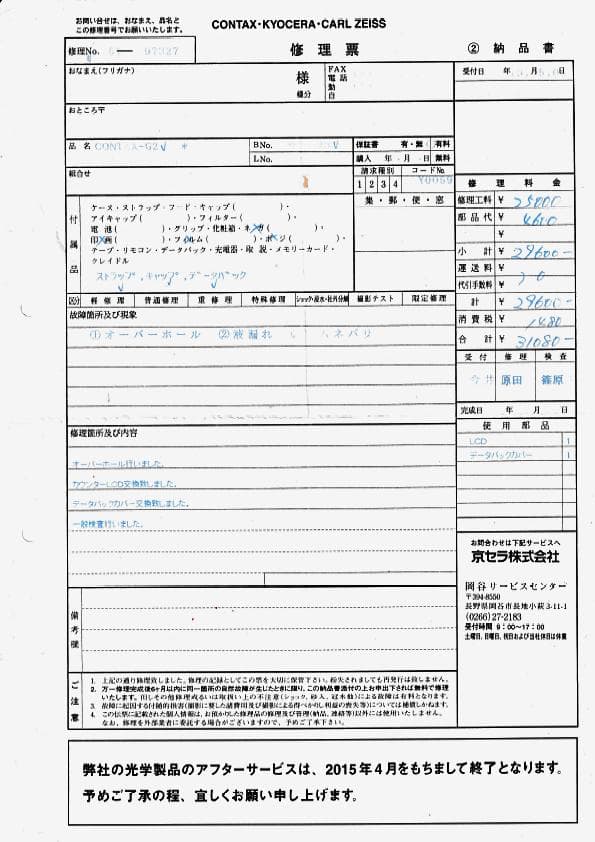 お問い合せは、おなまえ、品名と
この修理番号でお願いいたします。
CONTAX・KYOCERA・CARL ZEISS
修理No.
修理票
② 納品書
おなまえ(フリガナ)
様
様分
FAX
電話
勤
自
受付日 年 月 日
おところ〒
品名
BNo.
LNo.
保証書 有・無 有料
購入 年 月 日 無料
組合せ
請求種別 コードNo.
1 2 3 4
集・郵・便・窓
付属品
ケース・ストラップ・フード・キャップ( )・
アイキャップ( )・フィルター( )・
電池( )・グリップ・化粧箱・ネガ( )・
印画( )・フィルム( )・ポジ( )・
テープ・リモコン・データパック・充電器・取説・メモリーカード・
クレイドル
ストラップ、キャップ、データバック
修理料金
修理工料 ¥ 25000
部品代 ¥ 4600
¥
小計 ¥ 29600-
運送料 ¥
代引手数料 ¥
計 ¥ 29600-
消費税 ¥ 1480
合計 ¥ 31080-
区分 軽修理 普通修理 重修理 特殊修理 ショック・浸水・社外分解 撮影テスト 限定修理
故障箇所及び現象
①オーバーホール ②液漏れ ネバリ
受付 修理 検査
今井 原田 篠原
完成日 年 月 日
使用部品
LCD 1
データバックカバー 1
修理箇所及び内容
オーバーホール行いました。
カウンターLCD交換致しました。
データバックカバー交換致しました。
一般検査行いました。
お問合わせは下記サービスへ
京セラ株式会社
岡谷サービスセンター
〒394-8550
長野県岡谷市長地小萩3-11-1
(0266)27-2183
受付時間 9:00〜17:00
土曜日、日曜日、祝日および当社休日は休業
備考欄
ご注意
1. 上記の通り修理致しました。修理の記録としてこの票を大切に保管下さい。紛失されましても再発行は致しません。
2. 万一修理完成後6ヶ月以内に同一箇所の自然故障が生じたときに限り、この納品書添付の上お申出下されば無料で修理
いたします。但しその他修理或るいは取扱い上の不注意(ショック、砂入、冠水動)による故障は有料となります。
3. 故障に起因する付随的損害(撮影に要した諸費用及び撮影による得べかりし利益の喪失等)については補償しかねます。
4. この伝票に記載された個人情報は、お預かりした修理品の修理及び管理(納品、連絡等)以外には使用いたしません。
なお、修理を外部業者に委託する場合がございますので、予めご了承下さい。
弊社の光学製品のアフターサービスは、2015年4月をもちまして終了となります。
予めご了承の程、宜しくお願い申し上げます。